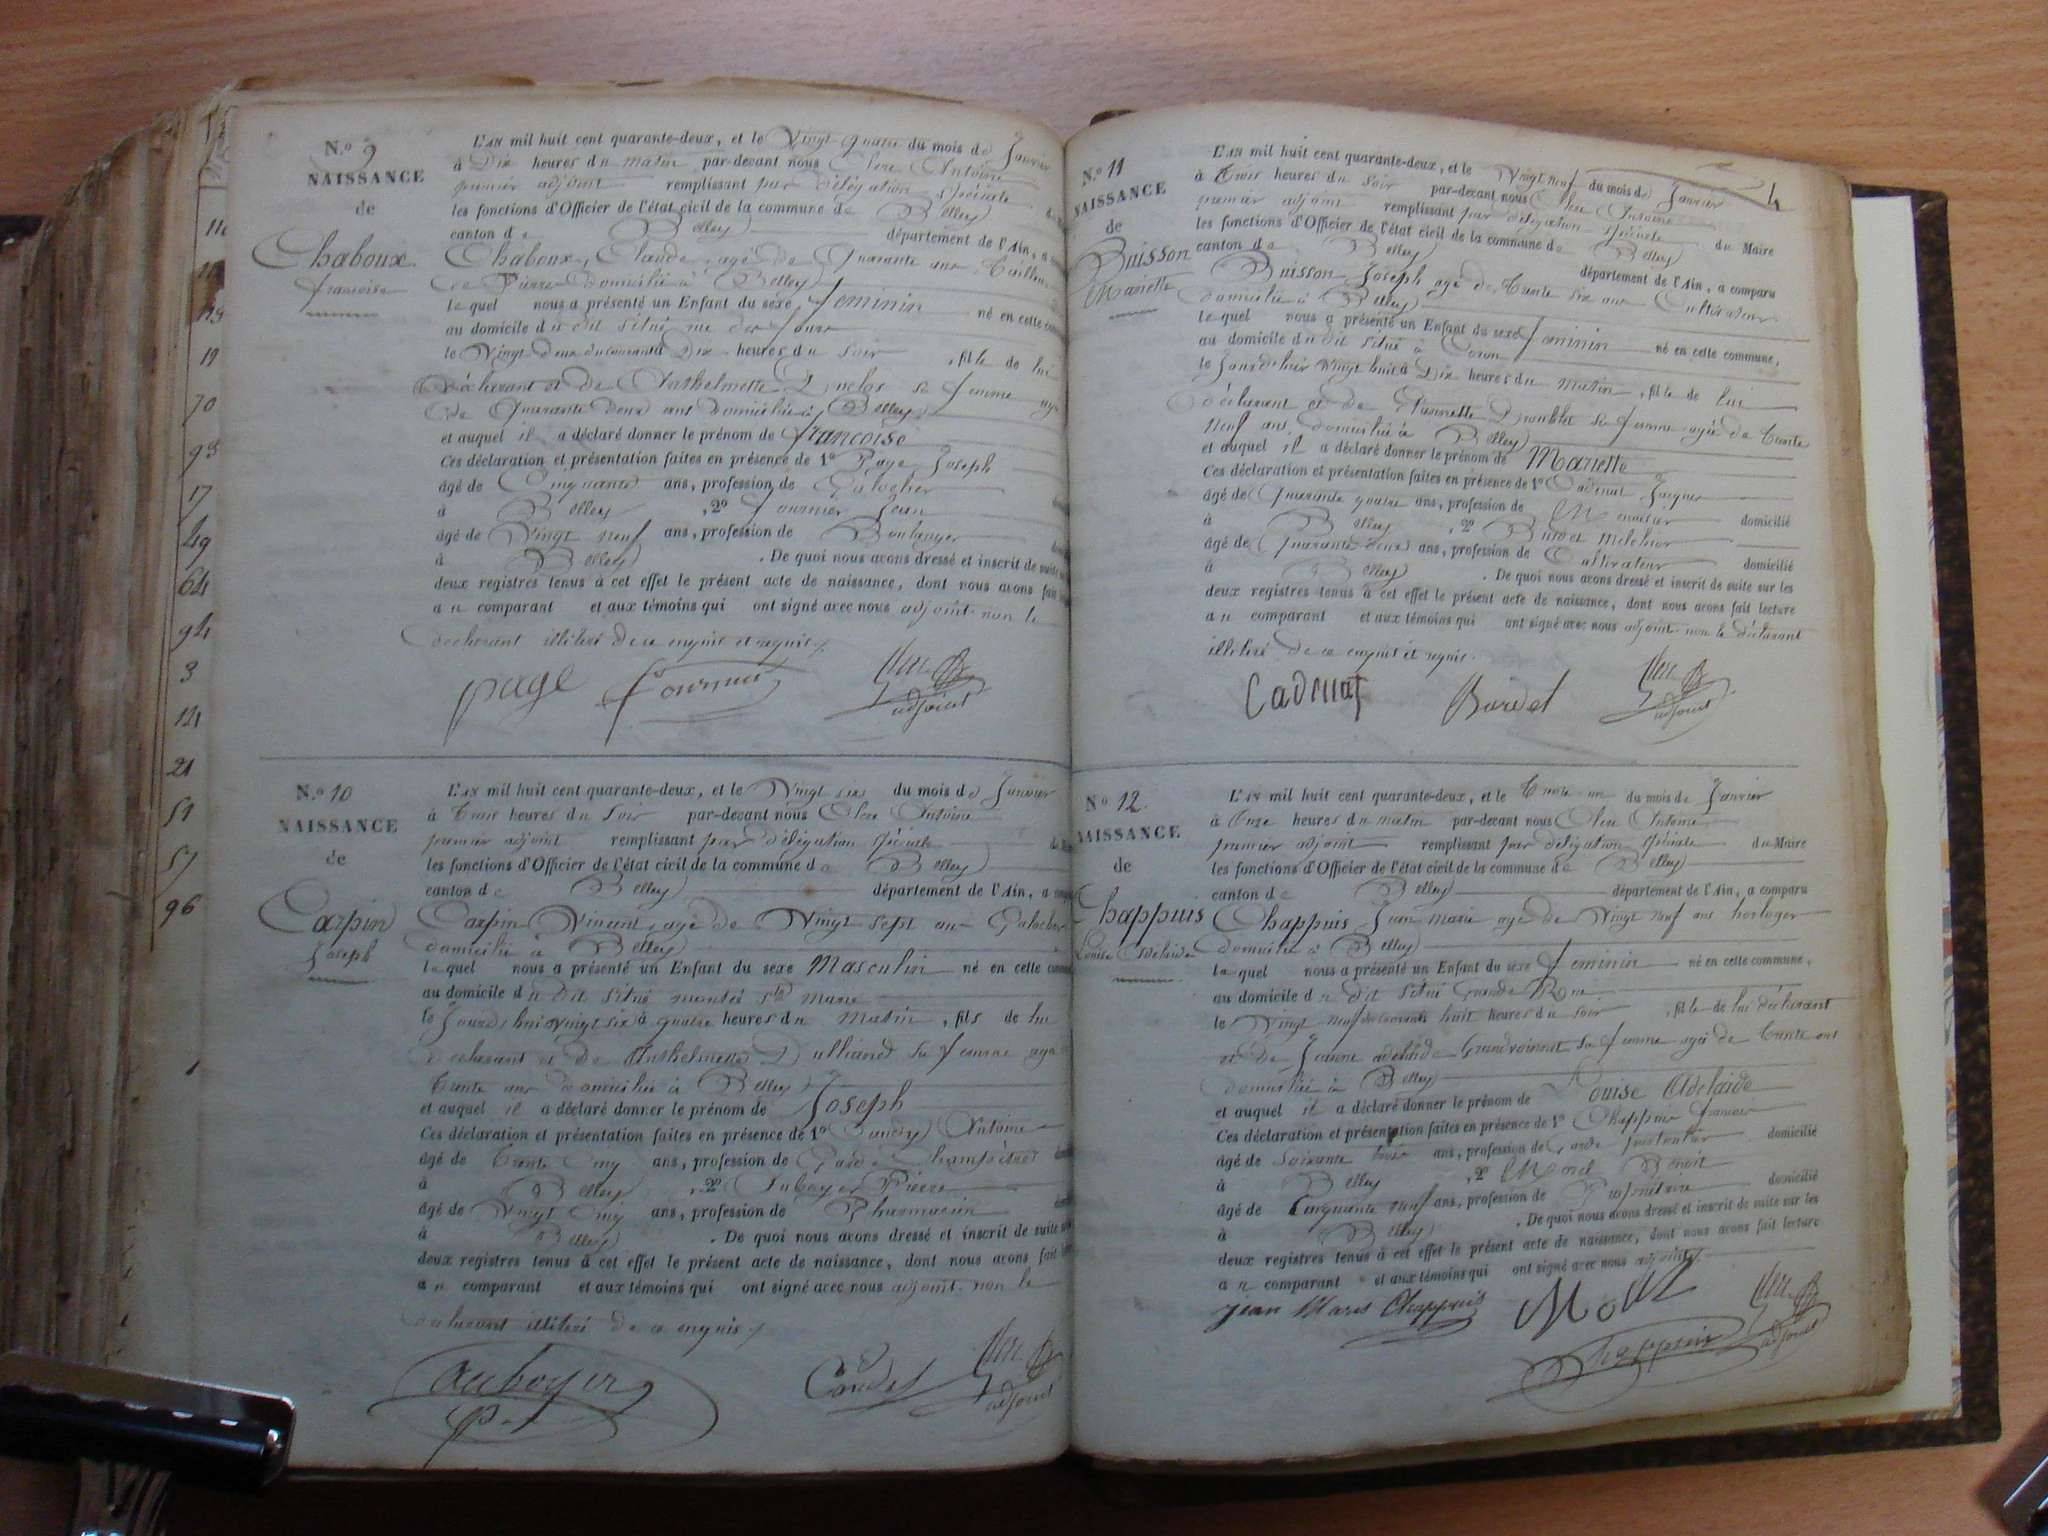 N.º 9
NAISSANCE
de
Chaboux
françoise
L'AN mil huit cent quarante-deux, et le Vingt quatre du mois de Janvier
à Dix heures du matin par-devant nous Antoine
premier adjoint remplissant par délégation spéciale
les fonctions d'Officier de l'état civil de la commune de Belley
canton de Belley département de l'Ain, a
Chaboux, Claude, agé de Quarante ans,
de Pierre domicilié à Belley
lequel nous a présenté un Enfant du sexe feminin né en cette
au domicile du dit situé rue du four
le Vingt Deux du courant à Dix heures du soir, fille de lui
déclarant et de Anthelmette sa femme
de Quarante Deux ans domiciliée à Belley
et auquel il a déclaré donner le prénom de françoise
Ces déclaration et présentation faites en présence de 1º Page Joseph
âgé de Cinquante ans, profession de Galocher
à Belley, 2º fournier Jean
âgé de Vingt neuf ans, profession de Boulanger
à Belley. De quoi nous avons dressé et inscrit de suite
deux registres tenus à cet effet le présent acte de naissance, dont nous avons fait
au comparant et aux témoins qui ont signé avec nous adjoint non le
déclarant illitéré de ce enquis et requis
page fournier adjoint
N.º 10
NAISSANCE
de
Carpin
Joseph
L'AN mil huit cent quarante-deux, et le Vingt six du mois de Janvier
à Trois heures du soir par-devant nous Antoine
premier adjoint remplissant par délégation spéciale
les fonctions d'Officier de l'état civil de la commune de Belley
canton de Belley département de l'Ain, a
Carpin Vincent, agé de Vingt sept ans Galocher
domicilié à Belley
lequel nous a présenté un Enfant du sexe Masculin né en cette
au domicile du dit situé montée Ste Marie
le Jourdhui vingt six à quatre heures du matin, fils de lui
déclarant et de Anthelmette Dulliand sa femme agée
trente ans domiciliée à Belley
et auquel il a déclaré donner le prénom de Joseph
Ces déclaration et présentation faites en présence de 1º Antoine
âgé de trente cinq ans, profession de Garde Champêtre
à Belley, 2º Auboyer Pierre
âgé de Vingt cinq ans, profession de Pharmacien
à Belley. De quoi nous avons dressé et inscrit de suite
deux registres tenus à cet effet le présent acte de naissance, dont nous avons fait
au comparant et aux témoins qui ont signé avec nous adjoint non le
déclarant illitéré de ce enquis
auboyer adjoint
4
Nº 11
NAISSANCE
de
Buisson
Mariette
L'AN mil huit cent quarante-deux, et le Vingt neuf du mois de Janvier
à trois heures du soir par-devant nous Antoine
premier adjoint remplissant par délégation spéciale du Maire
les fonctions d'Officier de l'état civil de la commune de Belley
canton de Belley département de l'Ain, a comparu
Buisson Joseph agé de trente six ans Cultivateur
domicilié à Belley
lequel nous a présenté un Enfant du sexe feminin né en cette commune,
au domicile du dit situé à Coron
le Jourdhui vingt huit à Dix heures du matin, fille de lui
déclarant et de sa femme agée de trente
neuf ans, domiciliée à Belley
et auquel il a déclaré donner le prénom de Mariette
Ces déclaration et présentation faites en présence de 1º Cadenat Jacques
âgé de Quarante quatre ans, profession de Menuisier domicilié
à Belley, 2º Burdet Melchior
âgé de Quarante Deux ans, profession de Cultivateur domicilié
à Belley. De quoi nous avons dressé et inscrit de suite sur les
deux registres tenus à cet effet le présent acte de naissance, dont nous avons fait lecture
au comparant et aux témoins qui ont signé avec nous adjoint non le déclarant
illitéré de ce enquis et requis.
Cadenat Burdet adjoint
Nº 12
NAISSANCE
de
Chappuis
Louise Adelaide
L'AN mil huit cent quarante-deux, et le trente un du mois de Janvier
à Onze heures du matin par-devant nous Antoine
premier adjoint remplissant par délégation spéciale du Maire
les fonctions d'Officier de l'état civil de la commune de Belley
canton de Belley département de l'Ain, a comparu
Chappuis Jean Marie agé de Vingt neuf ans horloger
domicilié à Belley
lequel nous a présenté un Enfant du sexe feminin né en cette commune,
au domicile du dit situé Grande Rue
le Vingt neuf du courant à huit heures du soir, fille de lui déclarant
et de Jeanne adelaide sa femme agée de trente ans
domiciliée à Belley
et auquel il a déclaré donner le prénom de Louise Adelaide
Ces déclaration et présentation faites en présence de 1º Chappuis francois
âgé de soixante trois ans, profession de Garde domicilié
à Belley, 2º Morel Benoit
âgé de Cinquante neuf ans, profession de Propriétaire domicilié
à Belley. De quoi nous avons dressé et inscrit de suite sur les
deux registres tenus à cet effet le présent acte de naissance, dont nous avons fait lecture
au comparant et aux témoins qui ont signé avec nous adjoint.
Jean Marie Chappuis Morel adjoint
Chappuis
70
93
17
49
64
94
3
14
21
51
57
96